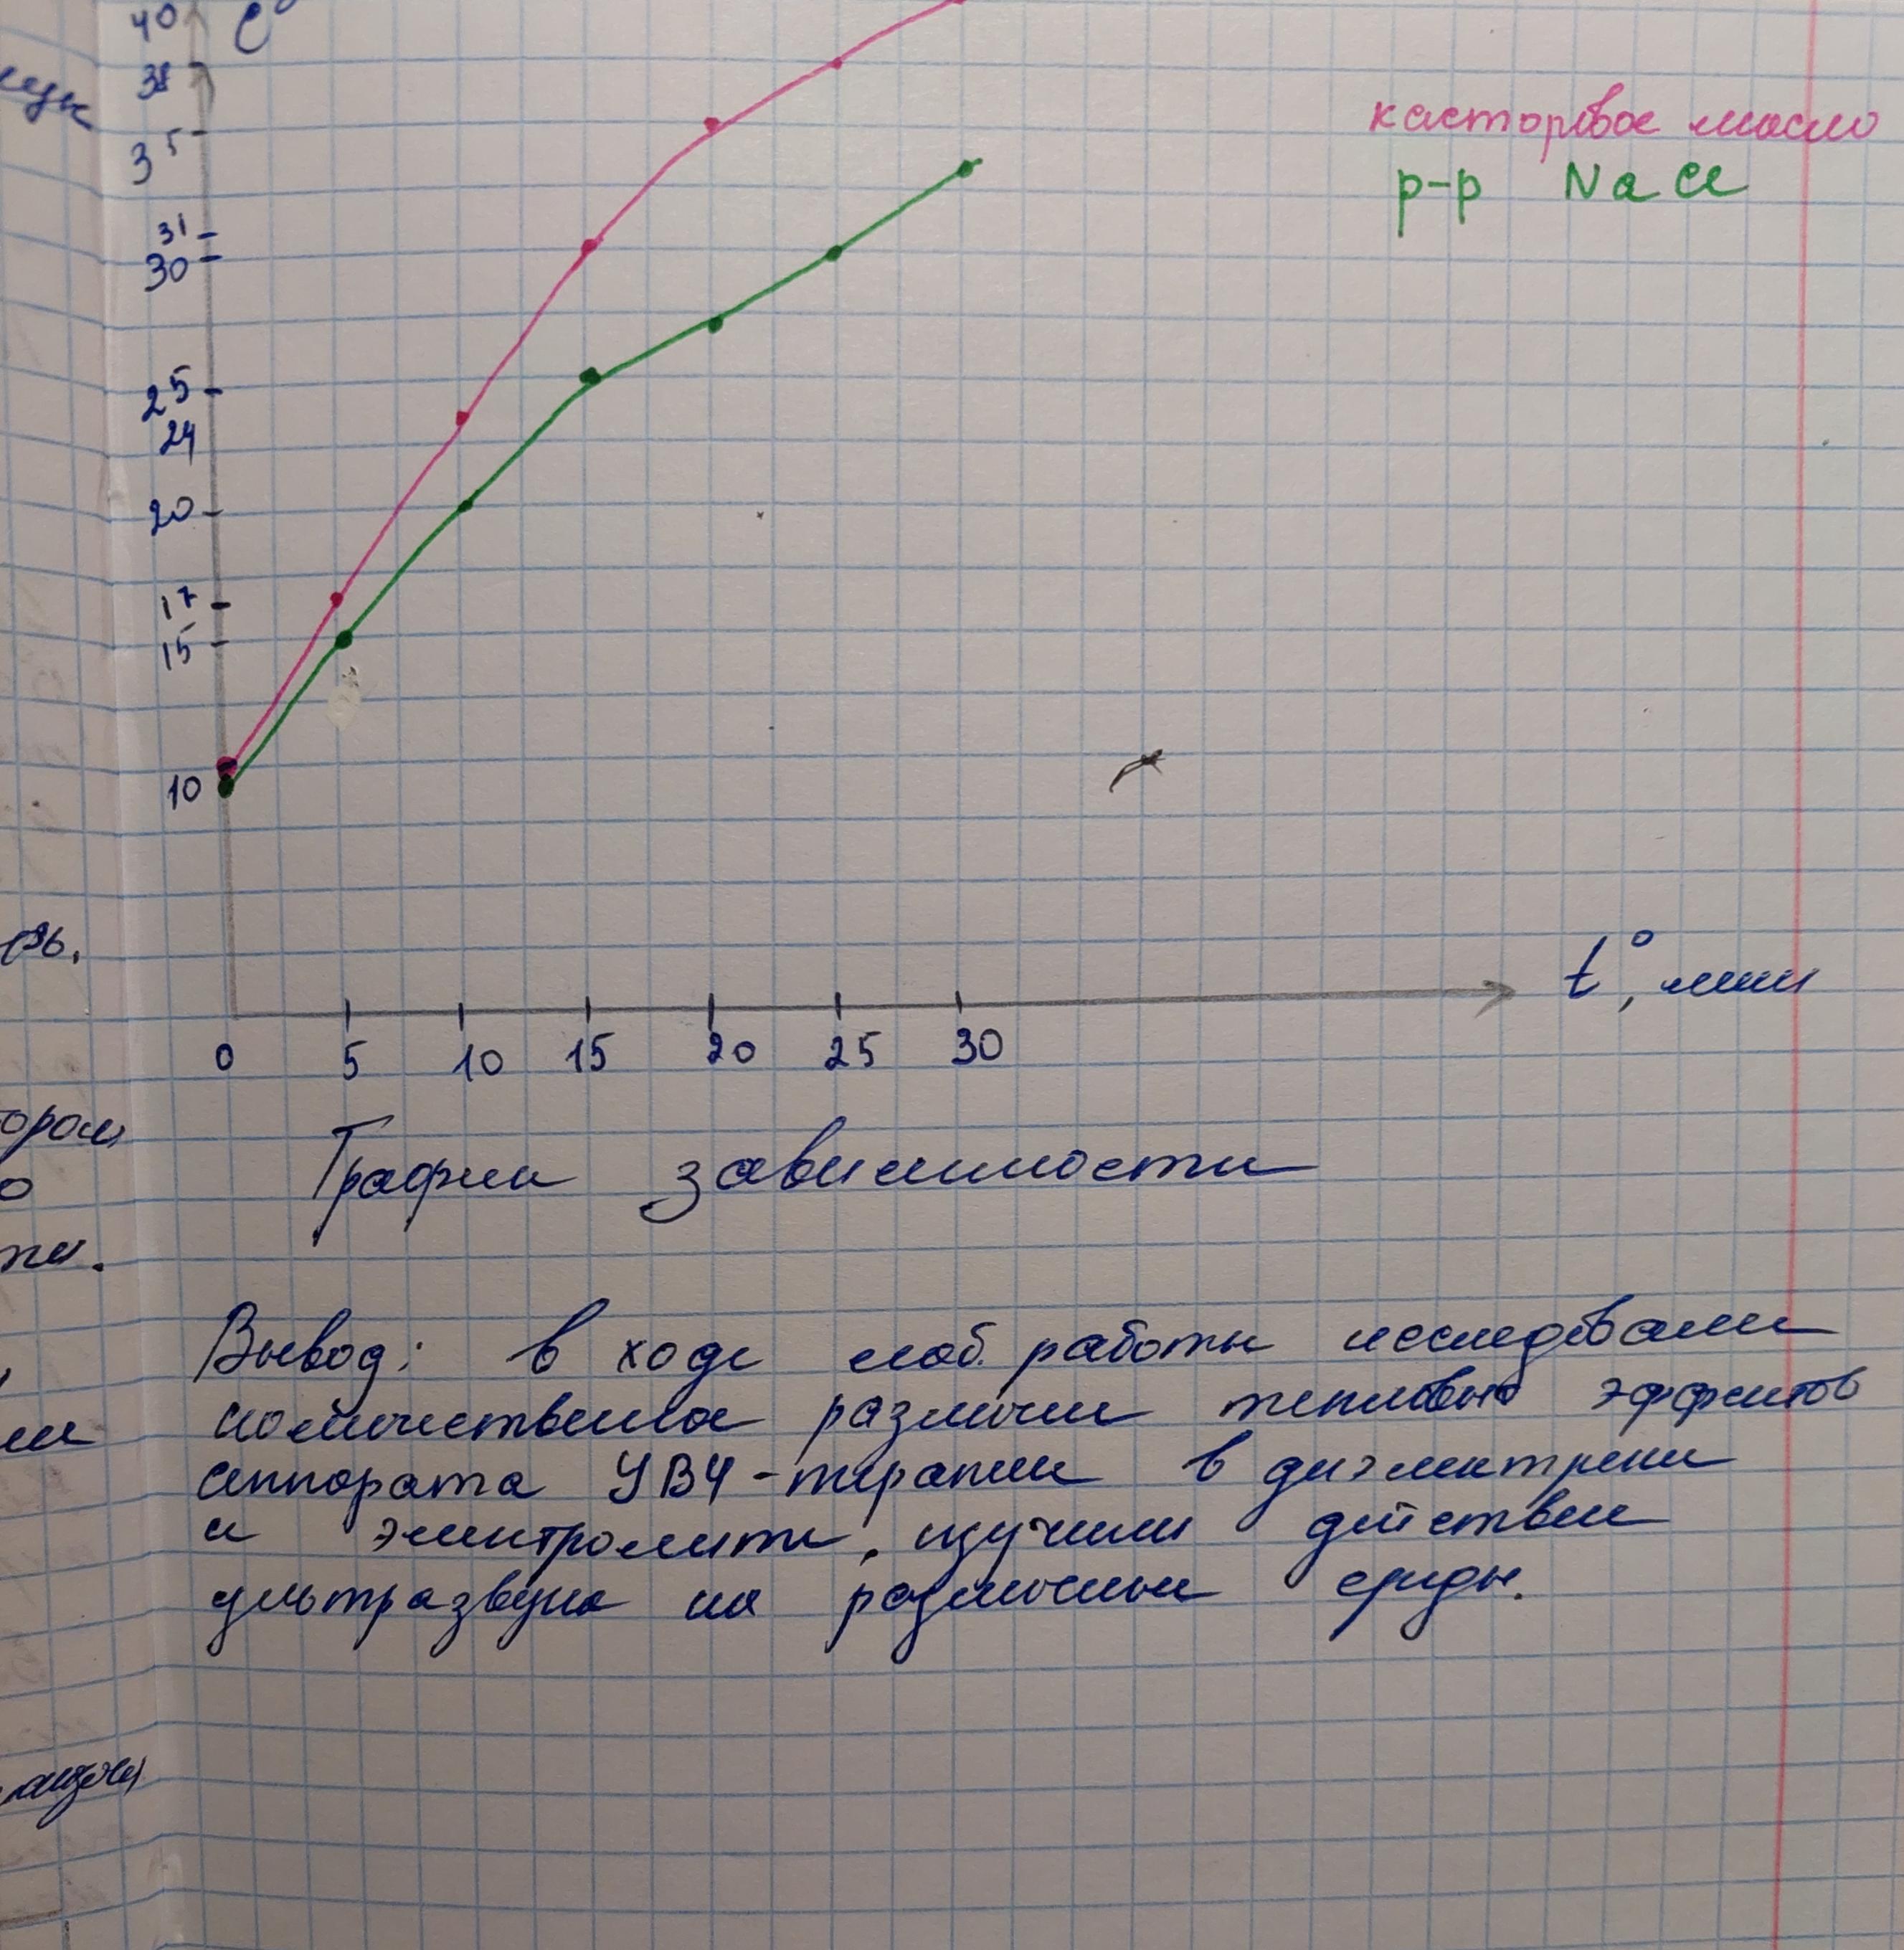 40 C°
38
35
31
30
25
24
20
17
15
10
касторовое масло
р-р NaCl
t°, мин
0 5 10 15 20 25 30
График зависимости
Вывод: в ходе лаб. работы исследовали
количественно различие тепловых эффектов
аппарата УВЧ-терапии в диэлектрике
и электролите, изучили действие
ультразвука на различные среды.